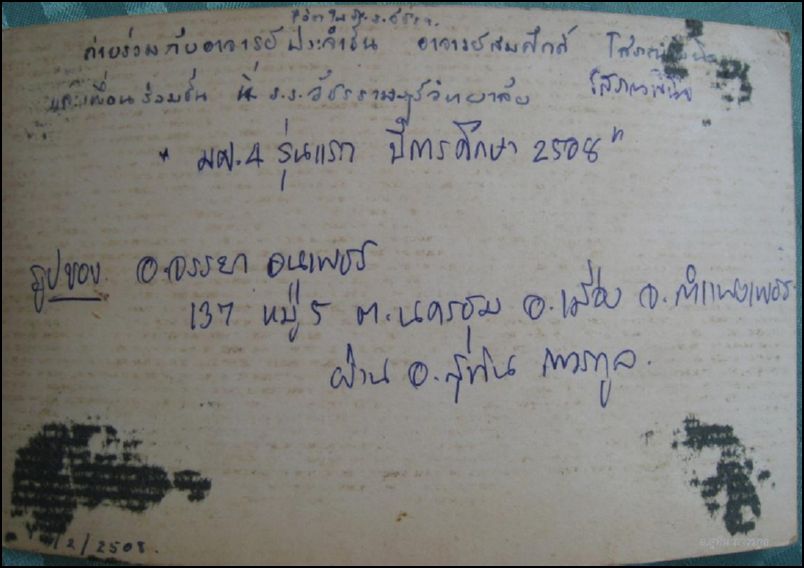 ถ่ายร่วมกับอาจารย์ประจำชั้น อาจารย์สมศักดิ์
และเพื่อนร่วมชั้น ที่ ร.ร.วัชรราษฎร์วิทยาลัย
" มศ.4 รุ่นแรก ปีการศึกษา 2508 "
รูปของ อ.จรรยา
137 หมู่ 5 ต.นครชุม อ.เมือง จ.กำแพงเพชร
ผ่าน อ.สุทิน
/2/2508.